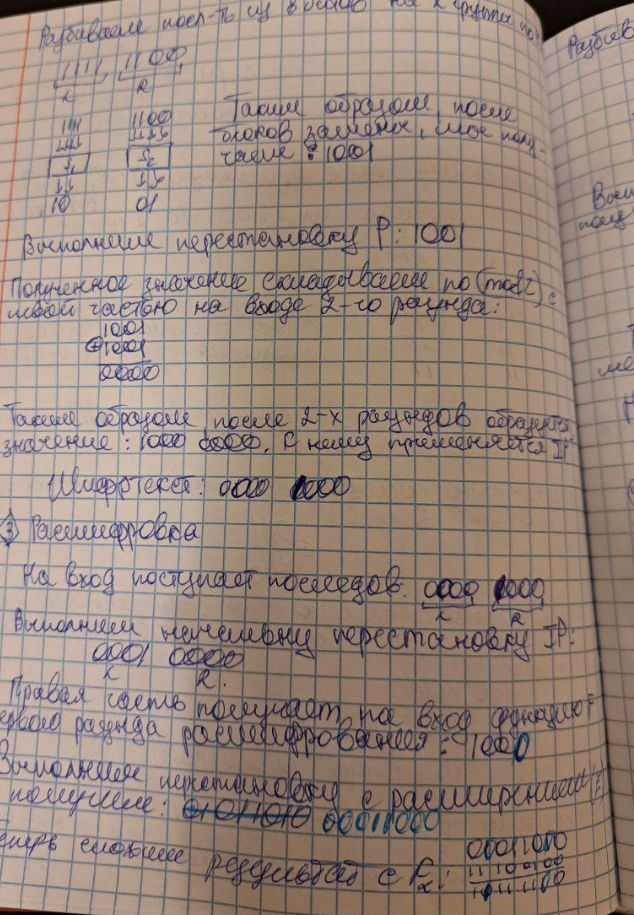 Разбиваем посл-ть из 8 битов на 2 группы по
1111 1100
L R
1111 1100
S1 S2
10 01
Таким образом, после
блоков замены, мы полу
чаем: 1001
Выполняем перестановку P: 1001
Полученное значение складываем по (mod2) с
левой частью на входе 2-го раунда:
1001
⊕1001
0000
Таким образом после 2-х раундов образуется
значение: 1000 0000. К нему применяется IP
Шифртекст: 0000 1000
3 Расшифровка
На вход поступает последов. 0000 1000
L R
Выполняем начальную перестановку IP:
0001 0000
L R.
Правая часть поступает на вход функции F
первого раунда расшифрования: 1000
Выполняем перестановку с расширением
получаем: 01011010 00011000
Теперь сложим результат с K2: 00011000
11100100
11111100
Разбив
Вып
полу